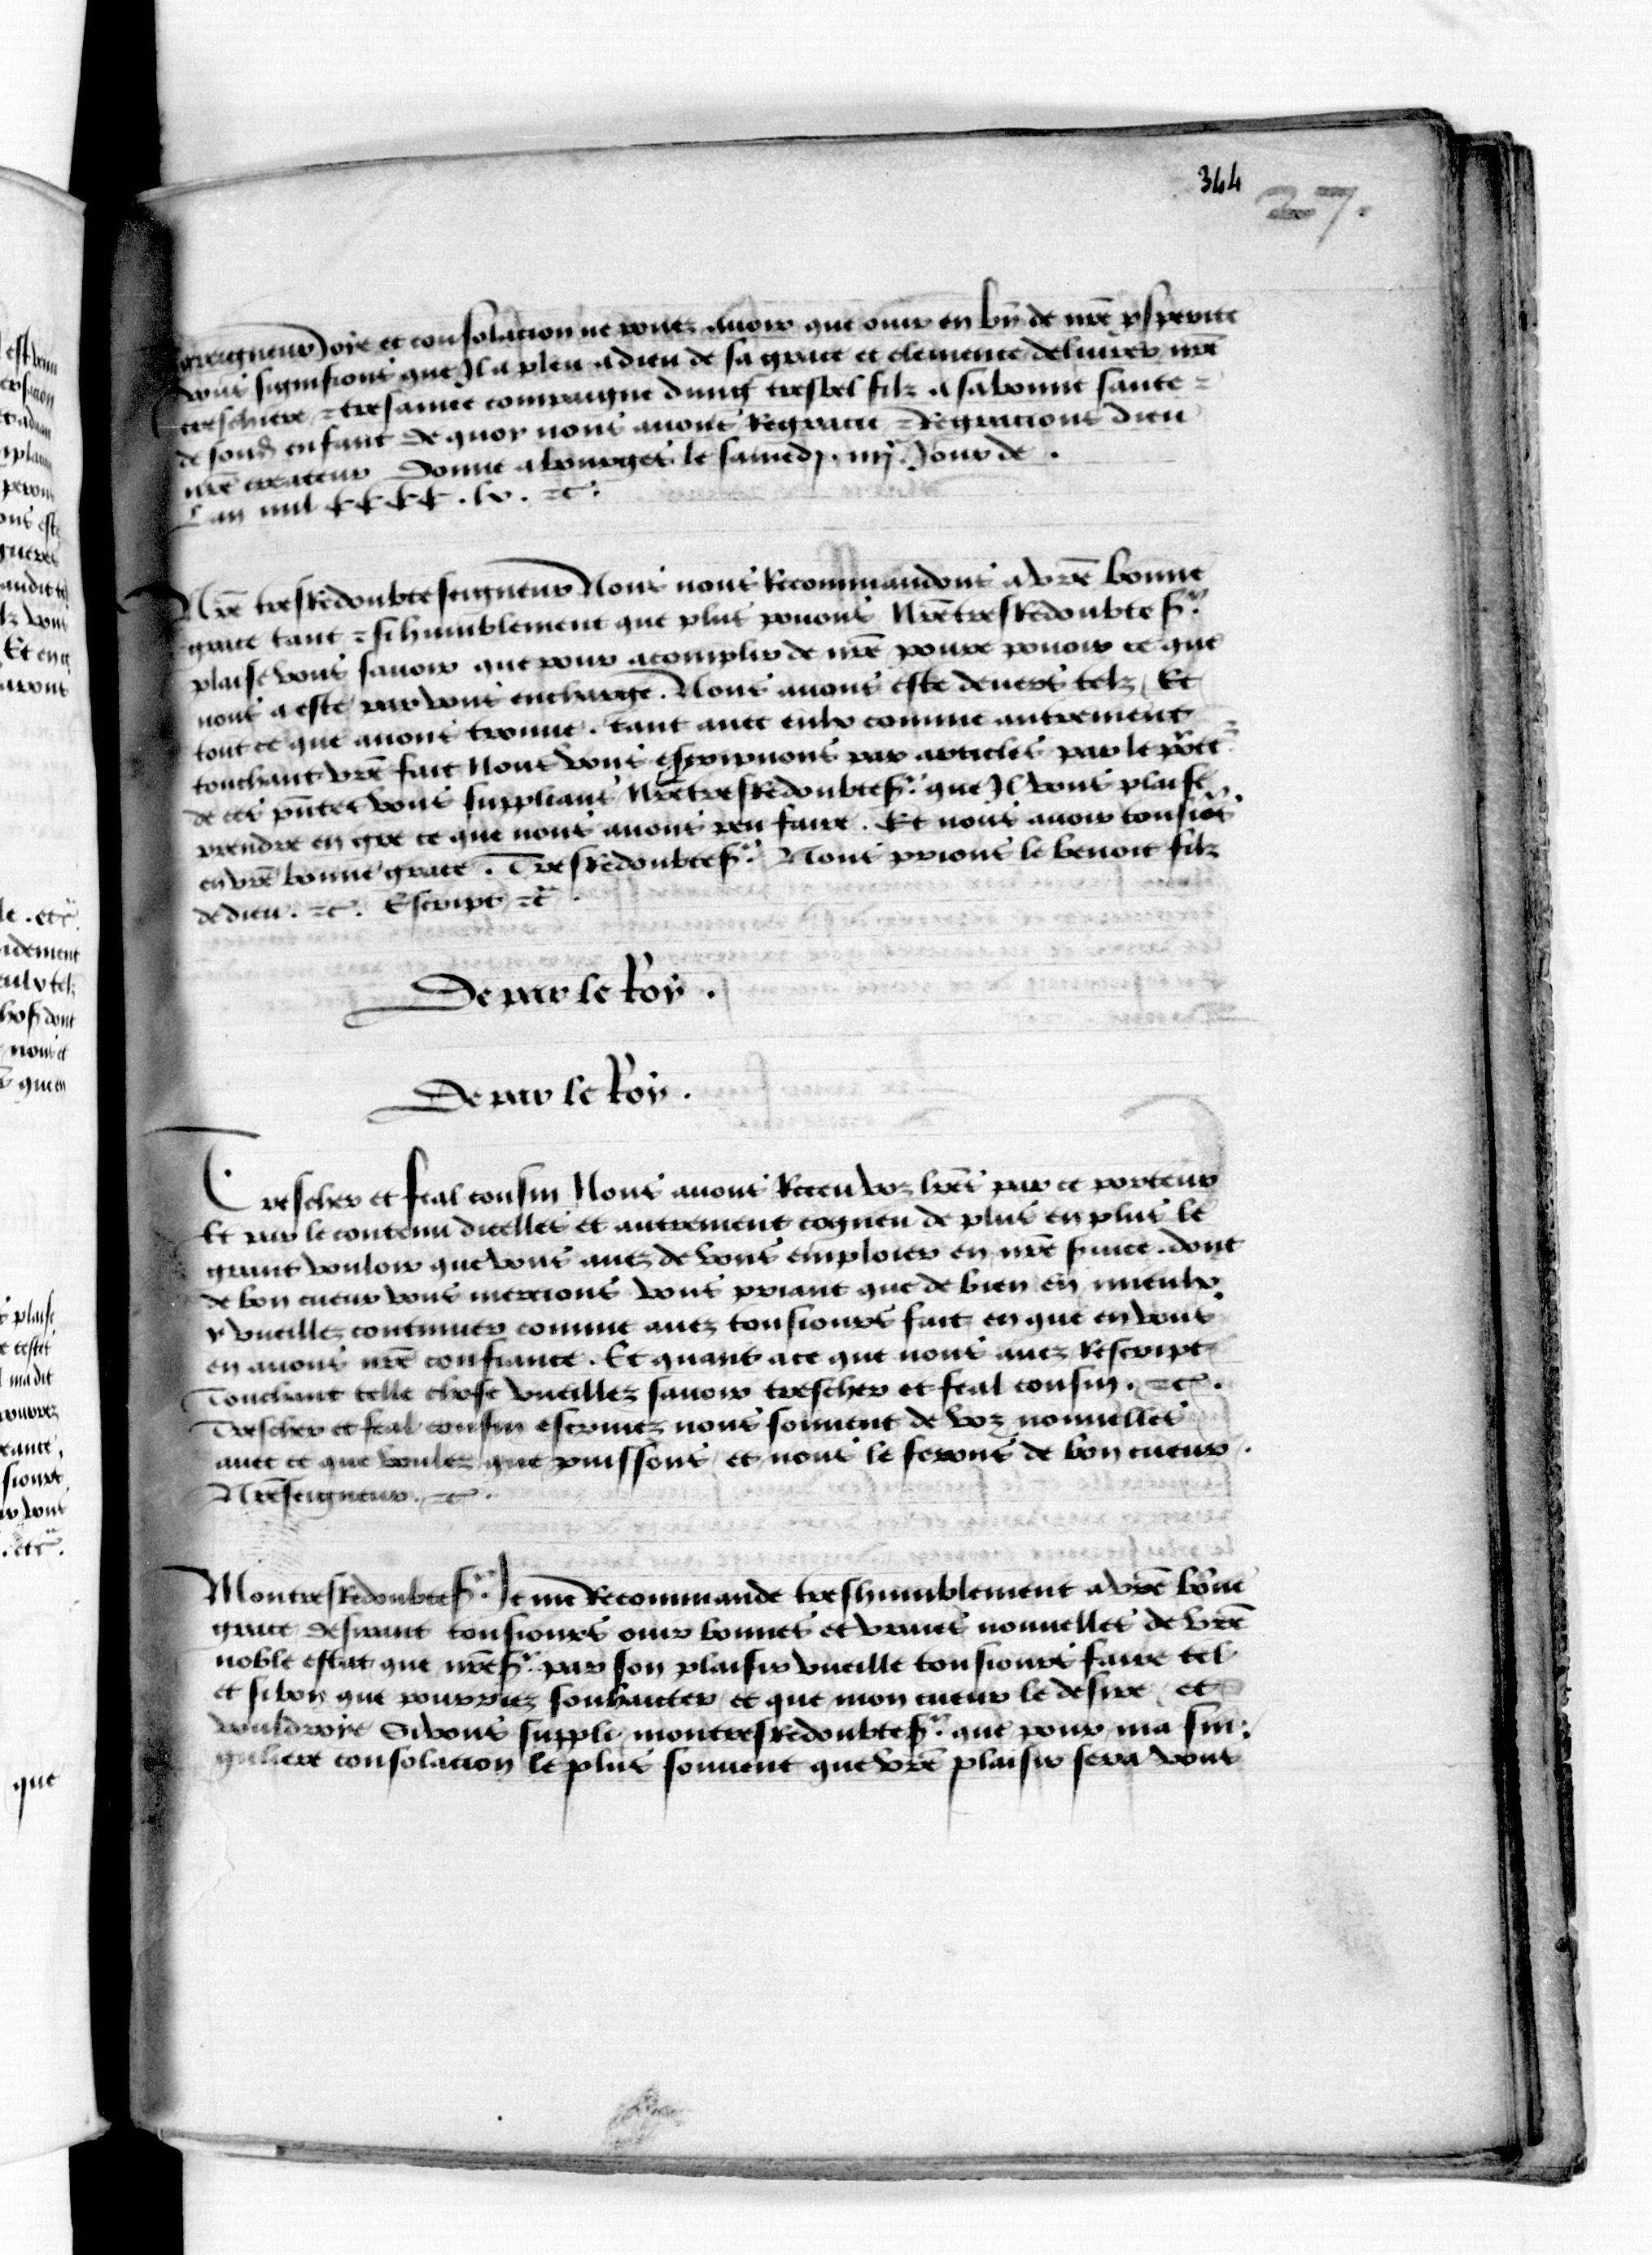 344
27.
greigneur Joye et consolacion ne pouez auoir que ouir en bñ de nrẽ ꝓsperite
vous signifions que Jl a pleu a dieu de sa grace et clemence deliurer nrẽ
treschiere ⁊ tresamee compaigne dung tresbel filz a sa bonne sante ⁊
de sond enfant De quoy nous auons Regracie ⁊ Regracions dieu
nrẽ createur Donne a bourges le samedj . iiijᵉ. Jour de .
Lan mil CCCC . lv . ⁊c̃.
Nrẽ tresRedoubte seigneur Nous nous Recommandons a vrẽ bonne
grace tant ⁊ si humblement que plus pouons Nrẽ tresRedoubte sʳ.
plaise vous sauoir que pour acomplir de nrẽ poure pouoir ce que
nous a este par vous encharge . Nous auons este deuers telz Et
tout ce que auons trouue . tant auec eulx comme autrement
touchant vrẽ fait Nous vous escripuons par articles par le portẽ.
de ces pñtes vous suppliant Nrẽ tresRedoubte sʳ. que Jl vous plaise
prendre en gre ce que nous auons peu faire . Et nous auoir tousios
en vrẽ bonne grace . TresRedoubte sʳ. Nous prions le benoit filz
de dieu . ⁊c̃. Escript ⁊c̃ .
De par le Roy .
De par le Roy .
Trescher et feal cousin Nous auons Receu voz lrẽs par ce porteur
Et par le contenu dicelles et autrement cogneu de plus en plus le
grant vouloir que vous auez de vous emploier en nrẽ sruice . dont
de bon cueur vous mercions vous priant que de bien en mieulx
y vueillez continuer comme auez tousiours fait en que en vous
en auons nrẽ confiance . Et quant a ce que nous auez Rescript
Touchant telle chose vueillez sauoir trescher et feal cousin . ⁊c̃.
Trescher et feal cousin escriuez nous souuent de voz nouuelles
auec ce que voulez que puissons et nous le ferons de bon cueur .
Nrẽ seigneur . ⁊c̃.
Mon tresRedoubte sʳ. Je me Recommande treshumblement a vrẽ bõne
grace desirant tousiours ouir bonnes et vraies nouuelles de vrẽ
noble estat que nrẽ sʳ. par son plaisir vueille tousiours faire tel
et si bon que pourriez souhaiter et que mon cueur le desire et
vouldroye Si vous suppli mon tresRedoubte sʳ. que pour ma sin:
guliere consolacion le plus souuent que vrẽ plaisir sera vous